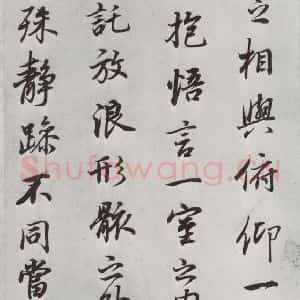 之相與俯仰一
抱悟言一室之内
託放浪形骸之外
殊静躁不同當
Shufawang.cn